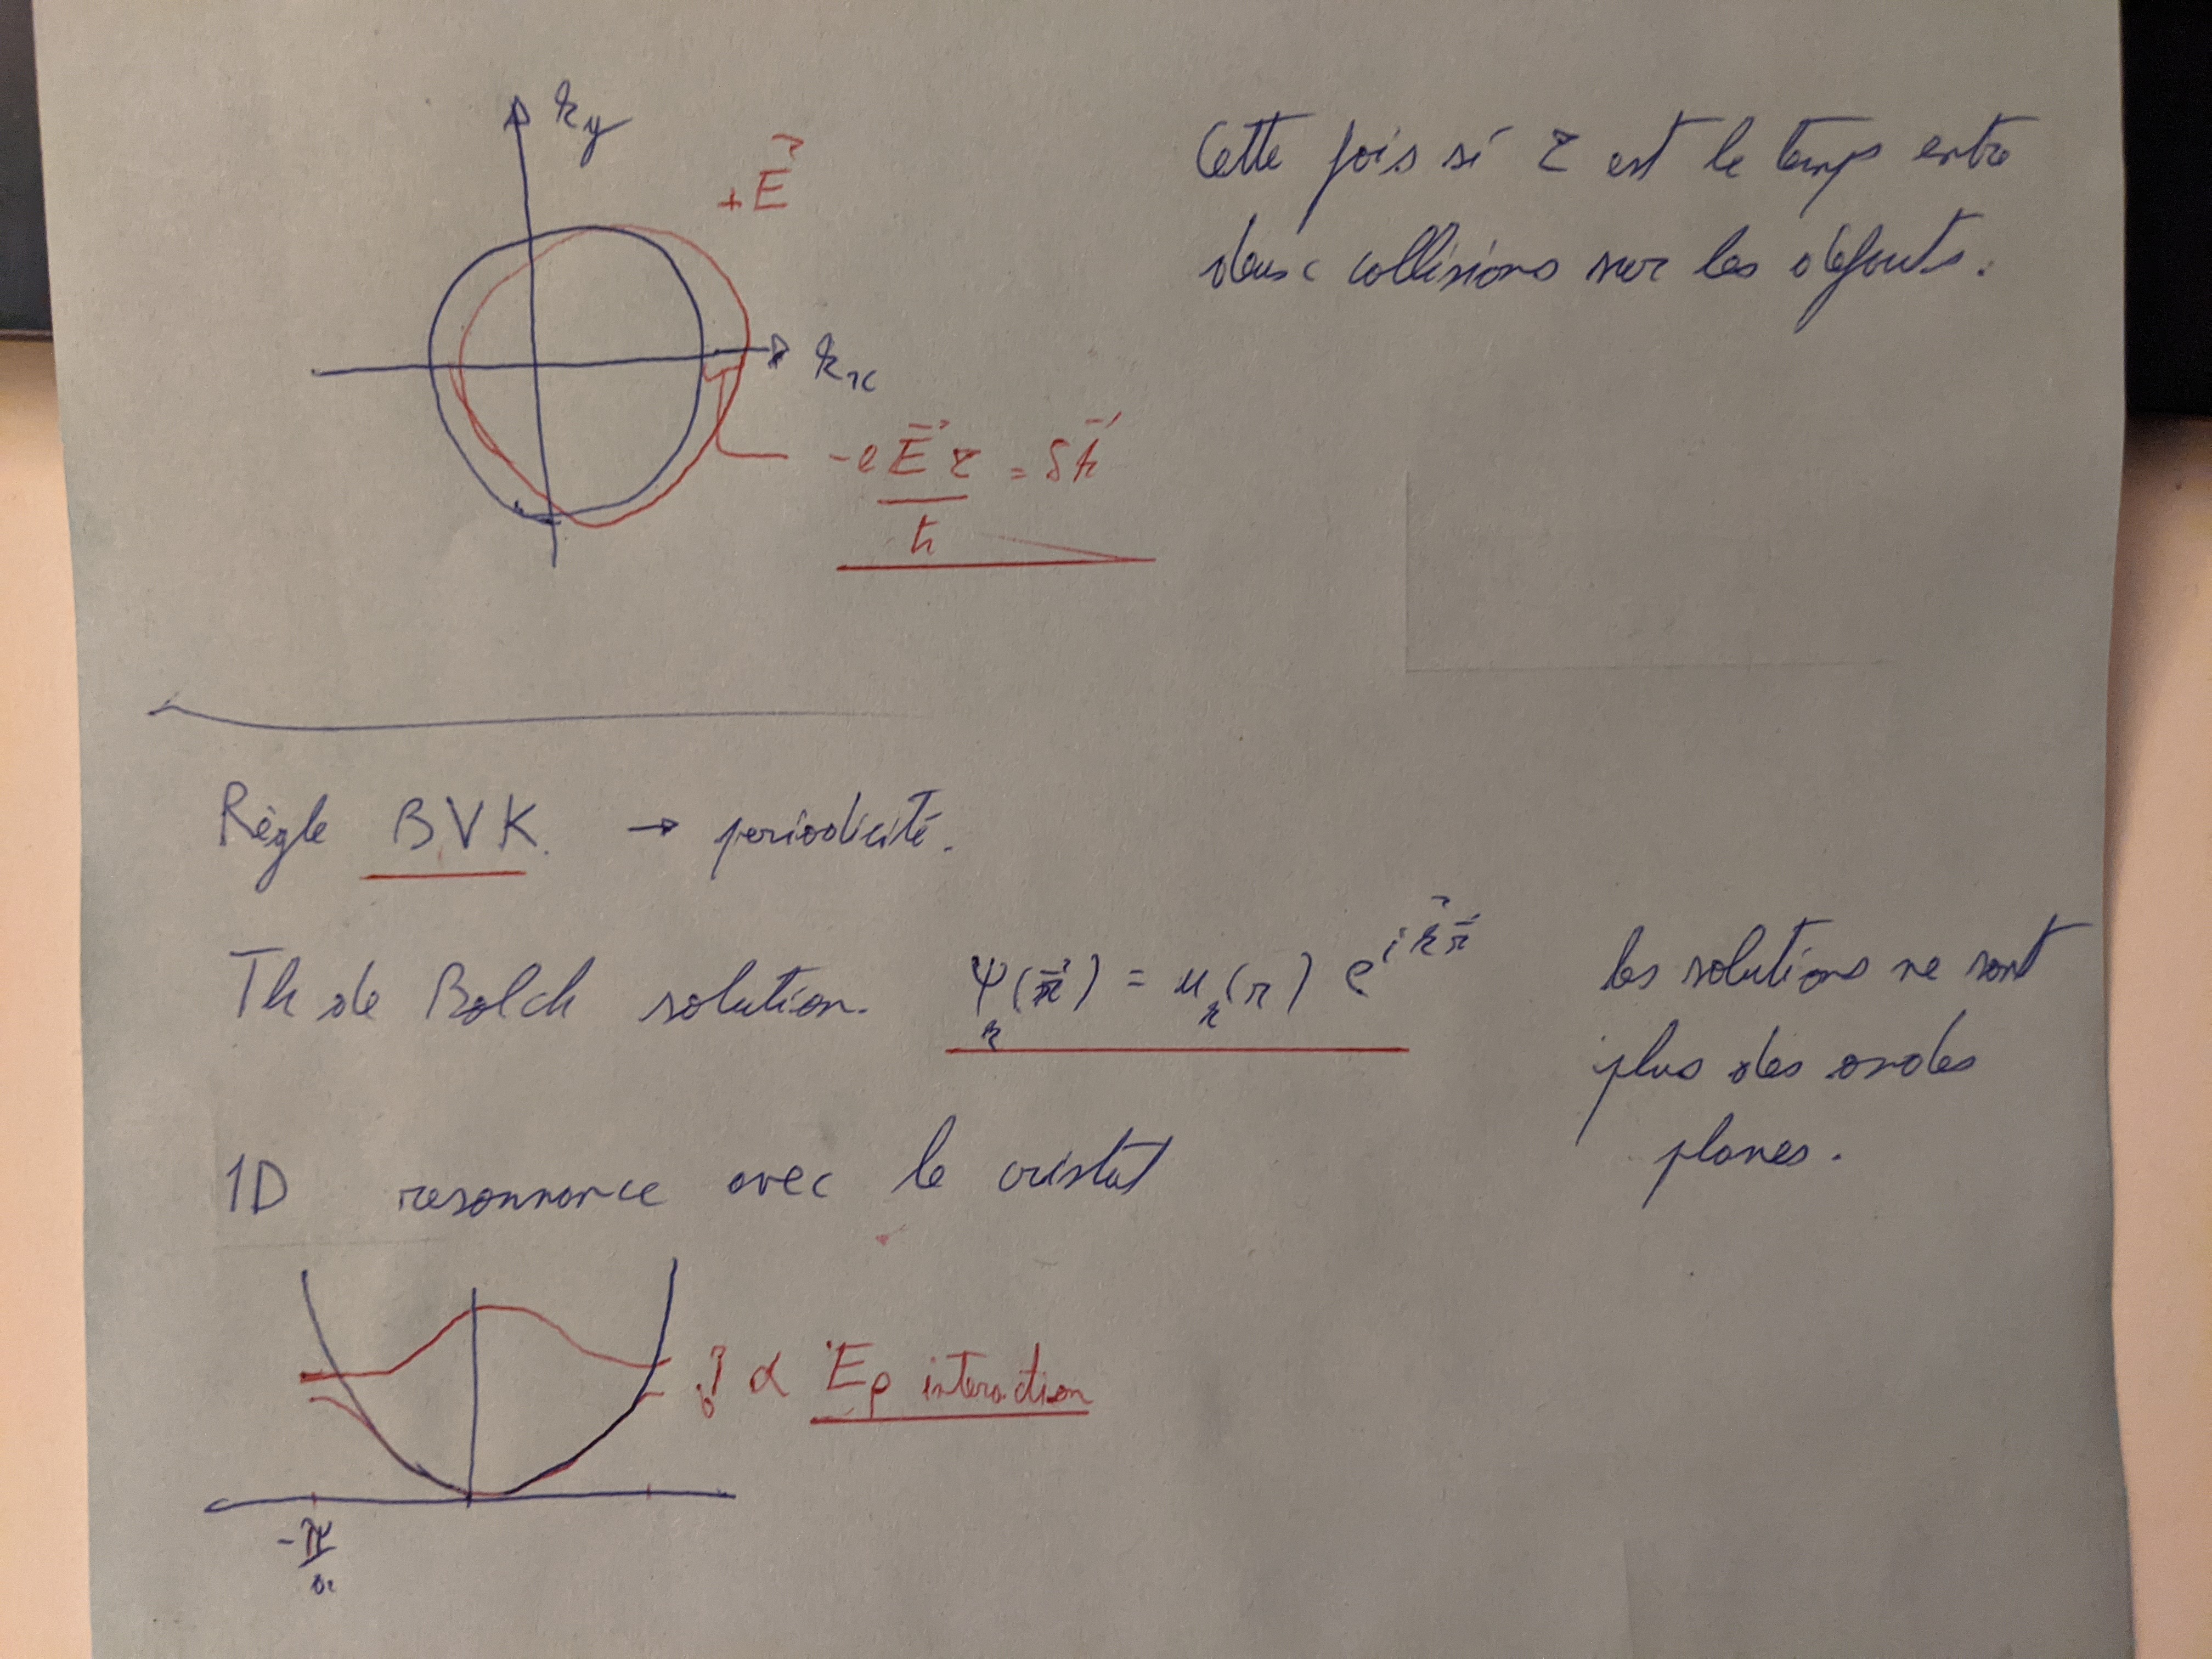 ky
+E⃗
kx
-eE⃗τ/ħ = δk⃗
Cette fois si τ est le temps entre
deux collisions sur les défauts.
Règle BVK → periodicité.
Th de Bloch solution. ψk(r⃗) = uk(r) e^{ik⃗r⃗}
les solutions ne sont
plus des ondes
planes.
1D resonance avec le cristal
} α Ep interaction
-π/a